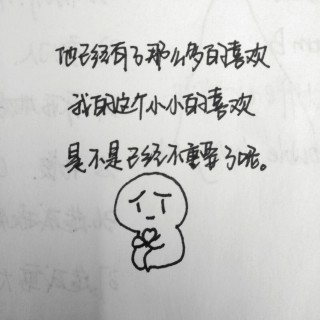 他已经有了那么多的喜欢
我的这个小小的喜欢
是不是已经不重要了呢。